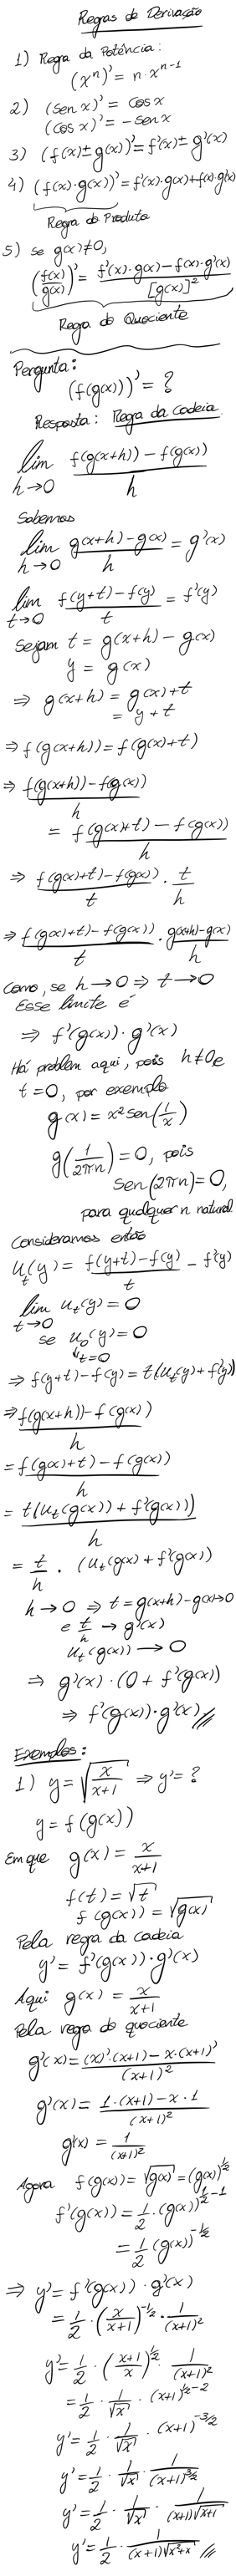 Regras de Derivação
1) Regra da Potência:
(xⁿ)' = n·xⁿ⁻¹
2) (sen x)' = cos x
(cos x)' = -sen x
3) (f(x) ± g(x))' = f'(x) ± g'(x)
4) (f(x)·g(x))' = f'(x)·g(x) + f(x)·g'(x)
Regra do Produto
5) se g(x) ≠ 0,
(f(x)/g(x))' = (f'(x)·g(x) - f(x)·g'(x))/[g(x)]²
Regra do Quociente
Pergunta:
(f(g(x)))' = ?
Resposta: Regra da Cadeia.
lim h→0 (f(g(x+h)) - f(g(x)))/h
Sabemos
lim h→0 (g(x+h) - g(x))/h = g'(x)
lim t→0 (f(y+t) - f(y))/t = f'(y)
Sejam t = g(x+h) - g(x)
y = g(x)
⇒ g(x+h) = g(x) + t
= y + t
⇒ f(g(x+h)) = f(g(x)+t)
⇒ (f(g(x+h)) - f(g(x)))/h
= (f(g(x)+t) - f(g(x)))/h
⇒ (f(g(x)+t) - f(g(x)))/t · t/h
⇒ (f(g(x)+t) - f(g(x)))/t · (g(x+h) - g(x))/h
Como, se h→0 ⇒ t→0
Esse limite é
⇒ f'(g(x))·g'(x)
Há problem aqui, pois h≠0 e
t = 0, por exemplo
g(x) = x² sen(1/x)
g(1/2πn) = 0, pois
sen(2πn) = 0,
para qualquer n natural
Consideramos então
uₜ(y) = (f(y+t) - f(y))/t - f'(y)
lim t→0 uₜ(y) = 0
se u₀(y) = 0
↳t=0
⇒ f(y+t) - f(y) = t(uₜ(y) + f'(y))
⇒ (f(g(x+h)) - f(g(x)))/h
= (f(g(x)+t) - f(g(x)))/h
= t(uₜ(g(x)) + f'(g(x)))/h
= t/h · (uₜ(g(x) + f'(g(x))
h→0 ⇒ t = g(x+h) - g(x)→0
e t/h → g'(x)
uₜ(g(x)) → 0
⇒ g'(x)·(0 + f'(g(x))
⇒ f'(g(x))·g'(x)
Exemplos:
1) y = √(x/(x+1)) ⇒ y' = ?
y = f(g(x))
Em que g(x) = x/(x+1)
f(t) = √t
f(g(x)) = √g(x)
Pela regra da cadeia
y' = f'(g(x))·g'(x)
Aqui g(x) = x/(x+1)
Pela regra do quociente
g'(x) = ((x)'·(x+1) - x·(x+1)')/(x+1)²
g'(x) = (1·(x+1) - x·1)/(x+1)²
g'(x) = 1/(x+1)²
Agora f(g(x)) = √g(x) = (g(x))^(1/2)
f'(g(x)) = 1/2·(g(x))^(1/2-1)
= 1/2 (g(x))^(-1/2)
⇒ y' = f'(g(x))·g'(x)
= 1/2·(x/(x+1))^(-1/2)·1/(x+1)²
y' = 1/2·((x+1)/x)^(1/2)·1/(x+1)²
= 1/2·1/√x·(x+1)^(1/2-2)
y' = 1/2·1/√x·(x+1)^(-3/2)
y' = 1/2·1/√x·1/(x+1)^(3/2)
y' = 1/2·1/√x·1/((x+1)√(x+1))
y' = 1/2·1/((x+1)√(x²+x))